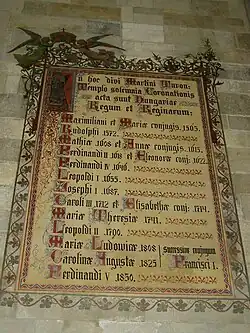 In hoc divi Martini Turon:
Templo solemnia Coronationis
acta sunt Hungariae
Regum et Reginarum:
Maximiliani et Mariae conjugis. 1563.
Rudolphi 1572.
Mathiae 1608 et Annae conjugis. 1613.
Ferdinandi II 1618 et Eleonorae conj: 1622.
Ferdinandi IV 1646.
Leopoldi I 1655.
Josephi I 1687.
Caroli III 1712 et Elisabethae conj: 1714.
Mariae Theresiae 1741.
Leopoldi II 1790.
Mariae Ludovicae 1808 successive conjugum
Carolinae Augustae 1825 Francisci I.
Ferdinandi V 1830.